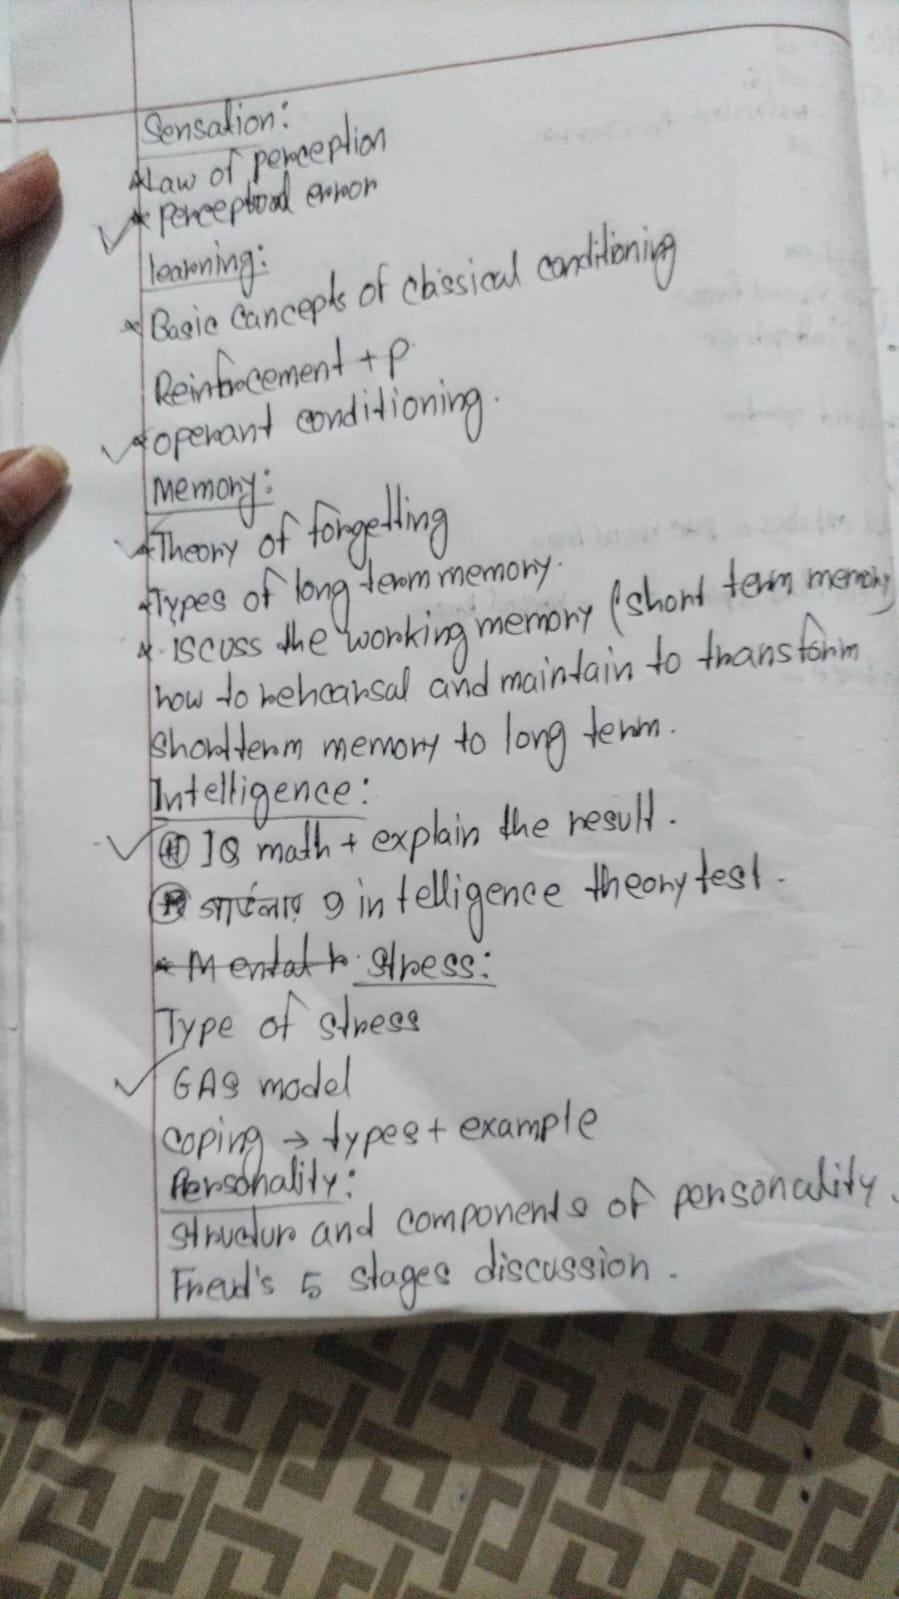 Sensation:
*Law of perception
* perceptual error
learning:
* Basic Cancepts of classical conditioning
Reinforcement + P
*operant conditioning.
Memory:
*Theory of forgetting
*Types of long term memory.
* iscuss the working memory (short term memory
how to rehearsal and maintain to transform
Short term memory to long term.
Intelligence:
IQ math + explain the result.
গার্ডনার 9 intelligence theory test.
* Mental h Stress:
Type of stress
GAS model
coping → types + example
Personality:
structur and components of personality.
Freud's 5 stages discussion.